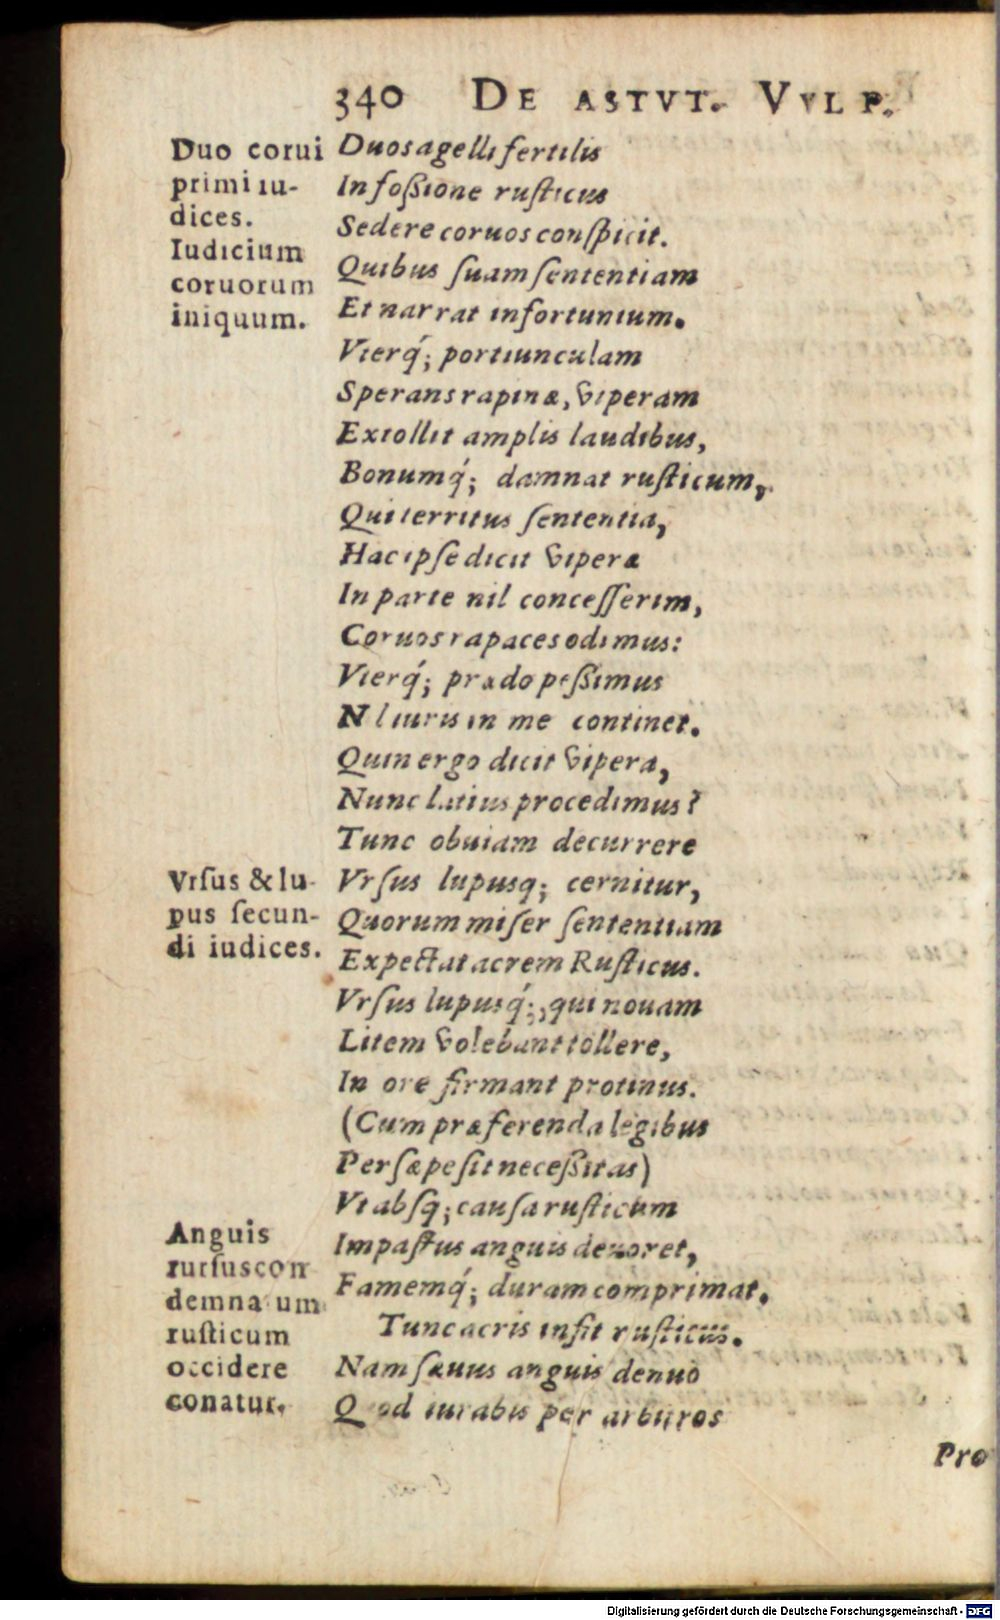 340 DE ASTVT. VVLP.
Duo corui
primi iu-
dices.
Iudicium
coruorum
iniquum.
Duos agelli fertilis
In foßione rusticus
Sedere coruos conspicit.
Quibus suam sententiam
Et narrat infortunium.
Vterq́; portiunculam
Sperans rapinæ, viperam
Extollit amplis laudibus,
Bonumq́; damnat rusticum,
Qui territus sententia,
Hac ipse dicit viperæ
In parte nil concesserim,
Coruos rapaces odimus:
Vterq́; prædo peßimus
Nl iuris in me continet.
Quin ergo dicit vipera,
Nunc latius procedimus?
Tunc obuiam decurrere
Vrsus & lu-
pus secun-
di iudices.
Vrsus lupusq; cernitur,
Quorum miser sententiam
Expectat acrem Rusticus.
Vrsus lupusq́;, qui nouam
Litem volebant tollere,
In ore firmant protinus.
(Cum præferenda legibus
Persæpe sit neceßitas)
Vt absq; causa rusticum
Anguis
rursus con
demnatum
rusticum
occidere
conatur.
Impastus anguis deuoret,
Famemq́; duram comprimat.
Tunc acris insit rusticus.
Nam sæuus anguis denuo
Quod iurabis per arbitros
Pro
Digitalisierung gefördert durch die Deutsche Forschungsgemeinschaft - DFG